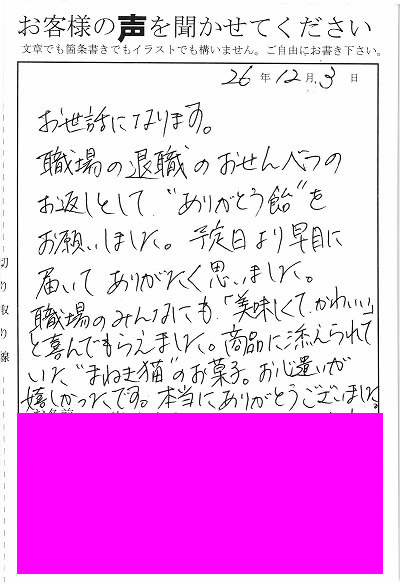 お客様の声を聞かせてください
文章でも箇条書きでもイラストでも構いません。ご自由にお書き下さい。
26年12月3日
お世話になります。
職場の退職のおせんべつの
お返しとして、“ありがとう飴”を
お願いしました。予定日より早目に
届いてありがたく思いました。
職場のみんなにも、「美味しくて、かわいい」
と喜んでもらえました。商品に添えられて
いた“まねき猫”のお菓子。お心遣いが
嬉しかったです。本当にありがとうございました。
切り取り線